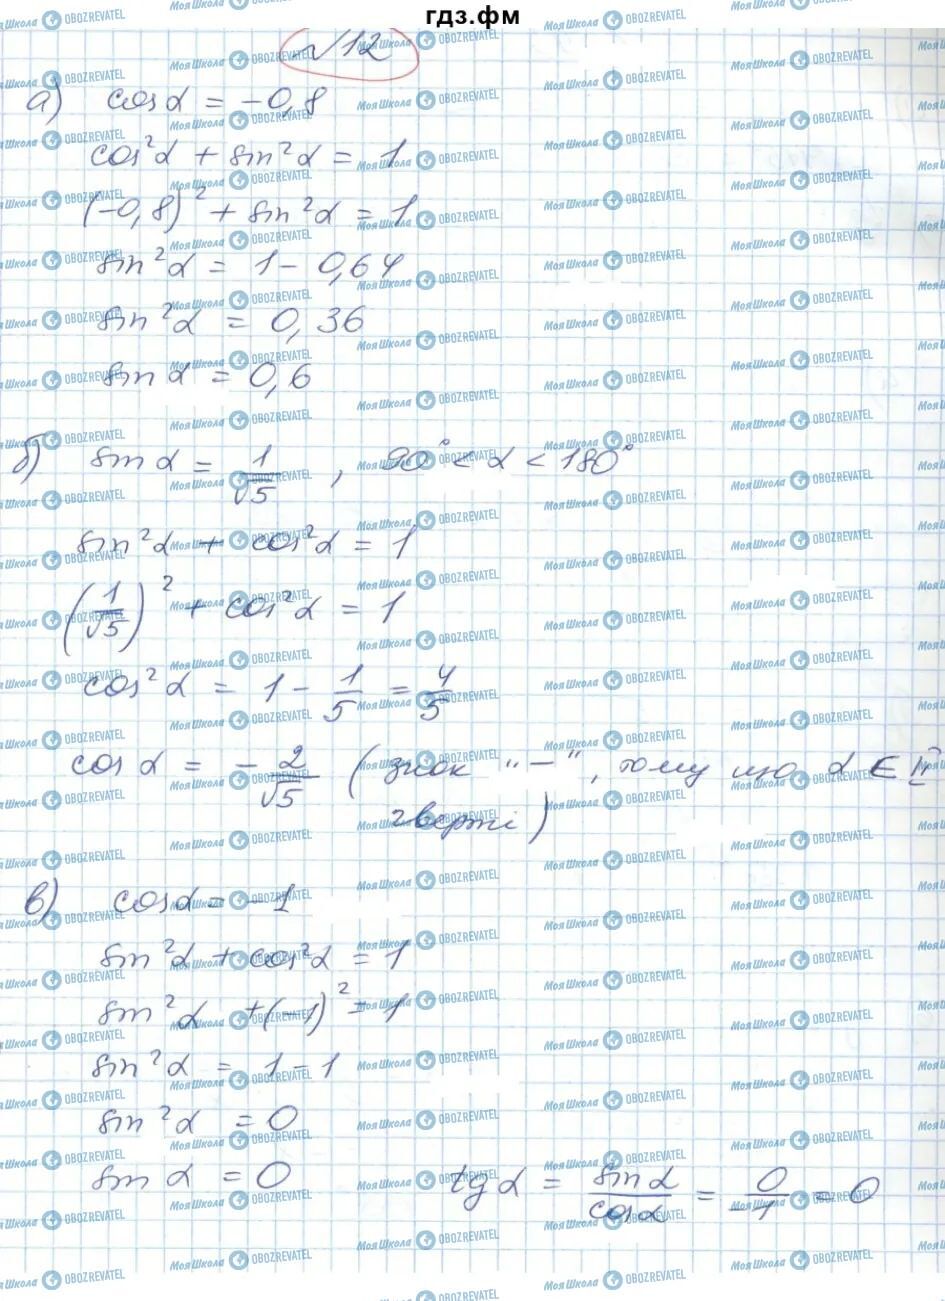 гдз.фм
√12
а) cos α = -0,8
cos²α + sin²α = 1
(-0,8)² + sin²α = 1
sin²α = 1 - 0,64
sin²α = 0,36
sin α = 0,6
б) sin α = 1/√5, 90° < α < 180°
sin²α + cos²α = 1
(1/√5)² + cos²α = 1
cos²α = 1 - 1/5 = 4/5
cos α = - 2/√5 (знак "-", тому що α ∈ II
чверті)
в) cos α = -1
sin²α + cos²α = 1
sin²α + (-1)² = 1
sin²α = 1 - 1
sin²α = 0
sin α = 0 tg α = sin α/cos α = 0/-1 = 0
Моя Школа OBOZREVATEL